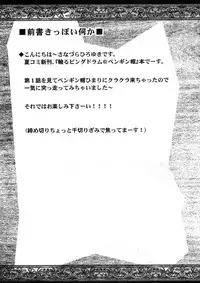 ■前書きっぽい何か■
◆こんにちは～さなづらひろゆきです。
夏コミ新刊、『輪るピングドラム@ペンギン帽』本でーす。
第1話を見てペンギン帽ひまりにクラクラ来ちゃったので
一気に突っ走ってみちゃいましたー
それではお楽しみ下さーい！！！！
（締め切りちょっと千切りぎみで焦ってまーす！）